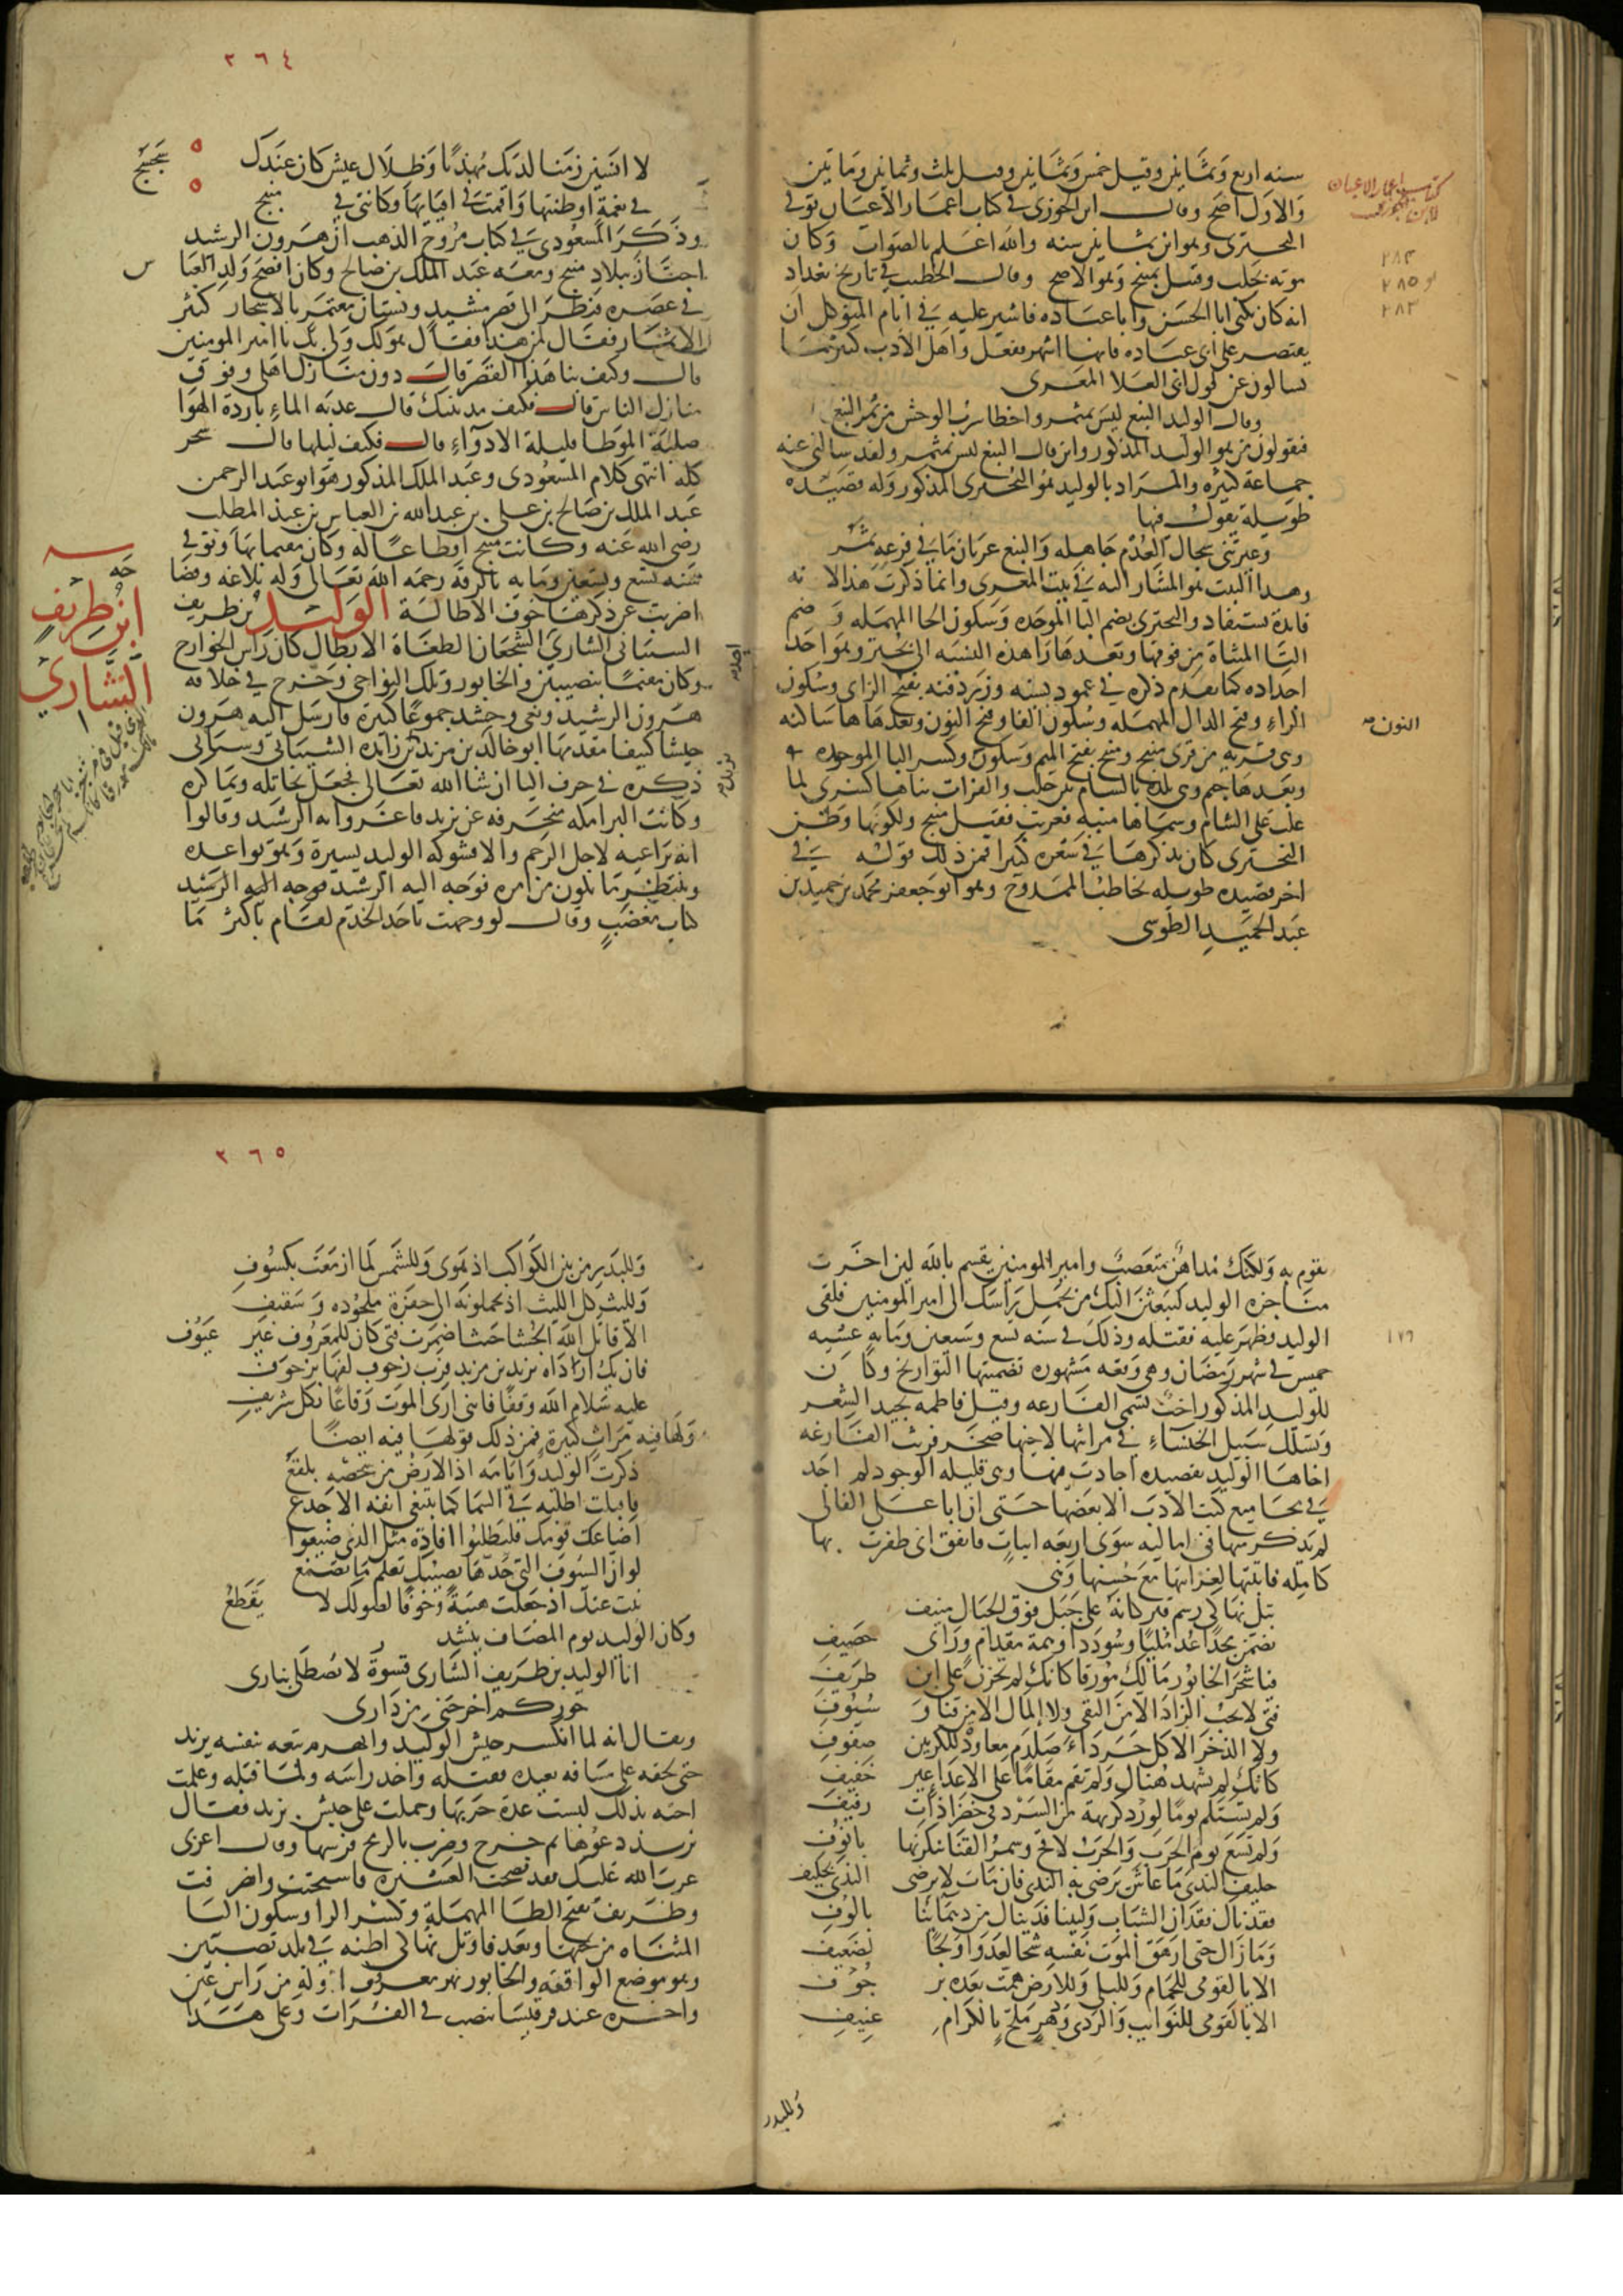 سنه اربع وثمانين وقيل خمس وثمانين وقيل ثلث وثمانين ومايتين
والاول اصح وقال ابن الجوزي في كتاب اعمار الاعيان توفي
البحتري وهو ابن ثمانين سنه والله اعلم بالصواب وكان
موته بحلب وقيل بمنبج وهو الاصح وقال الخطيب في تاريخ بغداد
انه كان يكنى ابا الحسن وابا عباده فاشير عليه في ايام المتوكل ان
يقتصر على ابي عباده فانها اشهر ففعل واهل الادب كثيرا ما
يسالون عن قول ابي العلا المعري
وقال الوليد النبع ليس بمثمر واخطا سرب الوحش من ثمر النبع
فيقولون من هو الوليد المذكور واين قال النبع ليس بمثمر ولقد سالني عنه
جماعة كثيرة والمراد بالوليد هو البحتري المذكور وله قصيده
طويلة يقول فيها
وعيرتني سجال العدم جاهله والنبع عريان ما في فرعه ثمر
وهذا البيت هو المشار اليه في بيت المعري وانما ذكرت هذا لانه
فايدة تستفاد والبحتري بضم البا الموحده وسكون الحا المهمله وضم
التا المثناة من فوقها وبعدها را هذه النسبه الى بحتر وهو احد
اجداده كما تقدم ذكره في عمود نسبه وزردفنه بفتح الزاي وسكون
الراء وفتح الدال المهمله وسكون الفا وفتح النون وبعدها ها ساكنه
وهي قريه من قرى منبج ومنبج بفتح الميم وسكون وكسر البا الموحده
النون
وبعدها جيم وهي بلدة بالشام بين حلب والفرات بناها كسرى لما
غلب على الشام وسماها منبه فعربت فقيل منبج ولكونها وطن
البحتري كان يذكرها في شعره كثيرا فمن ذلك قوله في
اخر قصيده طويله يخاطب الممدوح وهو ابو جعفر محمد بن حميد بن
عبد الحميد الطوسي
٣٦٤
لا انسين زمنا لديك مهذبا وظلال عيش كان عندك سجسج
في نعمة اوطنتها واقمت في افيايها وكانني في منبج
وذكر المسعودي في كتاب مروج الذهب ان هرون الرشيد
اجتاز ببلاد منبج ومعه عبد الملك بن صالح وكان افصح ولد العبا س
في عصره فنظر الى قصر مشيد وبستان معتمر بالاشجار كثير
الاثمار فقال لمن هذا فقال هو لك ولي بك يا امير المومنين
قال وكيف بنا هذا القصر قال دون منازل اهلي وفوق
منازل الناس قال فكيف مدينتك قال عذبه الماء باردة الهوا
صلبة الموطا قليلة الادواء قال فكيف ليلها قال سحر
كله انتهى كلام المسعودي وعبد الملك المذكور هو ابو عبد الرحمن
عبد الملك بن صالح بن علي بن عبد الله بن العباس بن عبد المطلب
رضي الله عنه وكانت منبج اقطاعا له وكان مقيما بها وتوفي
سنه تسع وتسعين ومايه بالرقة رحمه الله تعالى وله بلاغه وفصا
اضربت عن ذكرها خوف الاطالة الوليد بن طريف
ابن طريف
الشاري
الشيباني الشاري الشجعان الطغاة الابطال كان راس الخوارج
وكان مقيما بنصيبين والخابور وتلك النواحي وخرج في خلافه
هرون الرشيد وبغى وحشد جموعا كثيرة فارسل اليه هرون
جيشا كثيفا مقدمها ابو خالد بن مزيد بن زايده الشيباني وسياتي
ذكره في حرف اليا ان شا الله تعالى فجعل يخاتله ويماكره
وكانت البرامكه منحرفه عن يزيد فاغروا به الرشيد وقالوا
انه يراعيه لاجل الرحم والا فشوكه الوليد يسيرة وهو يواعده
وينتظر ما يكون من امره فوجه اليه الرشيد فوجه اليه الرشيد
كتاب مغضب وقال لو وجهت باحد الخدم لقام باكثر مما
يقوم به ولكنك مداهن متعصب وامير المومنين يقسم بالله لين اخرت
مناجزه الوليد ليبعثن اليك من يحمل راسك الى امير المومنين فلقي
الوليد فظهر عليه فقتله وذلك في سنه تسع وسبعين ومايه عشيه
١٧٩
خميس في شهر رمضان وهي وقعه مشهوره تضمنتها التواريخ وكان
للوليد المذكور اخت تسمى الفارعه وقيل فاطمه تجيد الشعر
وتسلك سبيل الخنساء في مراثيها لاخيها صخر فرثت الفارعه
اخاها الوليد بقصيده اجادت فيها وهي قليله الوجود لم اجد
في مجاميع كتب الادب الا بعضها حتى ان ابا علي القالي
لم يذكر منها في اماليه سوى اربعه ابيات فاتفق اني ظفرت بها
كامله فاثبتها لغرابتها مع حسنها وهي
بتل نهاكي رسم قبر كانه على جبل فوق الجبال منيف
تضمن مجدا عدمليا وسوددا وهمة مقدام وراى حصيف
فيا شجر الخابور مالك مورقا كانك لم تحزن على ابن طريف
فتى لا يحب الزاد الا من التقى ولا المال الا من قنا وسيوف
ولا الذخر الا كل جرداء صلدم معاود للكر بين صفوف
كانك لم تشهد هناك ولم تقم مقاما على الاعدا غير خفيف
ولم تستلم يوما لورد كريهة من السرد في خضرا ذات رفيف
ولم تسع يوم الحرب والحرب لاقح وسمر القنا ينكزنها بانوف
حليف الندى ما عاش يرضى به الندى فان مات لا يرضى الندى بحليف
فقدناك فقدان الشباب وليتنا فديناك من دهمائنا بالوف
وما زال حتى ازهق الموت نفسه شجا لعدو او نجا لضعيف
الا يا لقومي للحمام وللبلى وللارض همت بعده برجوف
الا يا لقومي للنوايب والردى ودهر ملح بالكرام عنيف
وللبدر
٣٦٥
وللبدر من بين الكواكب اذ هوى وللشمس لما ازمعت بكسوف
ولليث كل الليث اذ يحملونه الى حفرة ملحوده وسقيف
الا قاتل الله الحشا حيث اضمرت فتى كان للمعروف غير عيوف
فان يك ارداه يزيد بن مزيد فرب زحوف لفها بزحوف
عليه سلام الله وقفا فانني ارى الموت وقاعا بكل شريف
ولها فيه مراث كثيرة فمن ذلك قولها فيه ايضا
ذكرت الوليد وايامه اذ الارض من شخصه بلقع
فاقبلت اطلبه في السما كما يبتغي انفه الاجدع
اضاعك قومك فليطلبوا افادة مثل الذي ضيعوا
لو ان السيوف التي حدها يصيبك تعلم ما تصنع
نبت عنك اذ جعلت هيبة وخوفا لصولك لا تقطع
وكان الوليد يوم المصاف ينشد
انا الوليد بن طريف الشاري قسورة لا يصطلى بناري
جوركم اخرجني من داري
ويقال انه لما انكسر جيش الوليد وانهزم تبعه بنفسه يزيد
حتى لحقه على مسافه بعيده فقتله واخذ راسه ولما قتله وعلمت
اخته بذلك لبست عدة حربها وحملت على جيش يزيد فقال
يزيد دعوها ثم خرج وضرب بالرمح فرسها وقال اعزبي
عزب الله عليك فقد فضحت العشيره فاستحيت وانصرفت
وطريف بفتح الطا المهملة وكسر الرا وسكون اليا
المثناه من تحتها وبعد فا وتل نهاكي اظنه في بلد نصيبين
وهو موضع الواقعه والخابور نهر معروف اوله من راس عين
واخره عند قرقيسا يصب في الفرات وعلى هذا